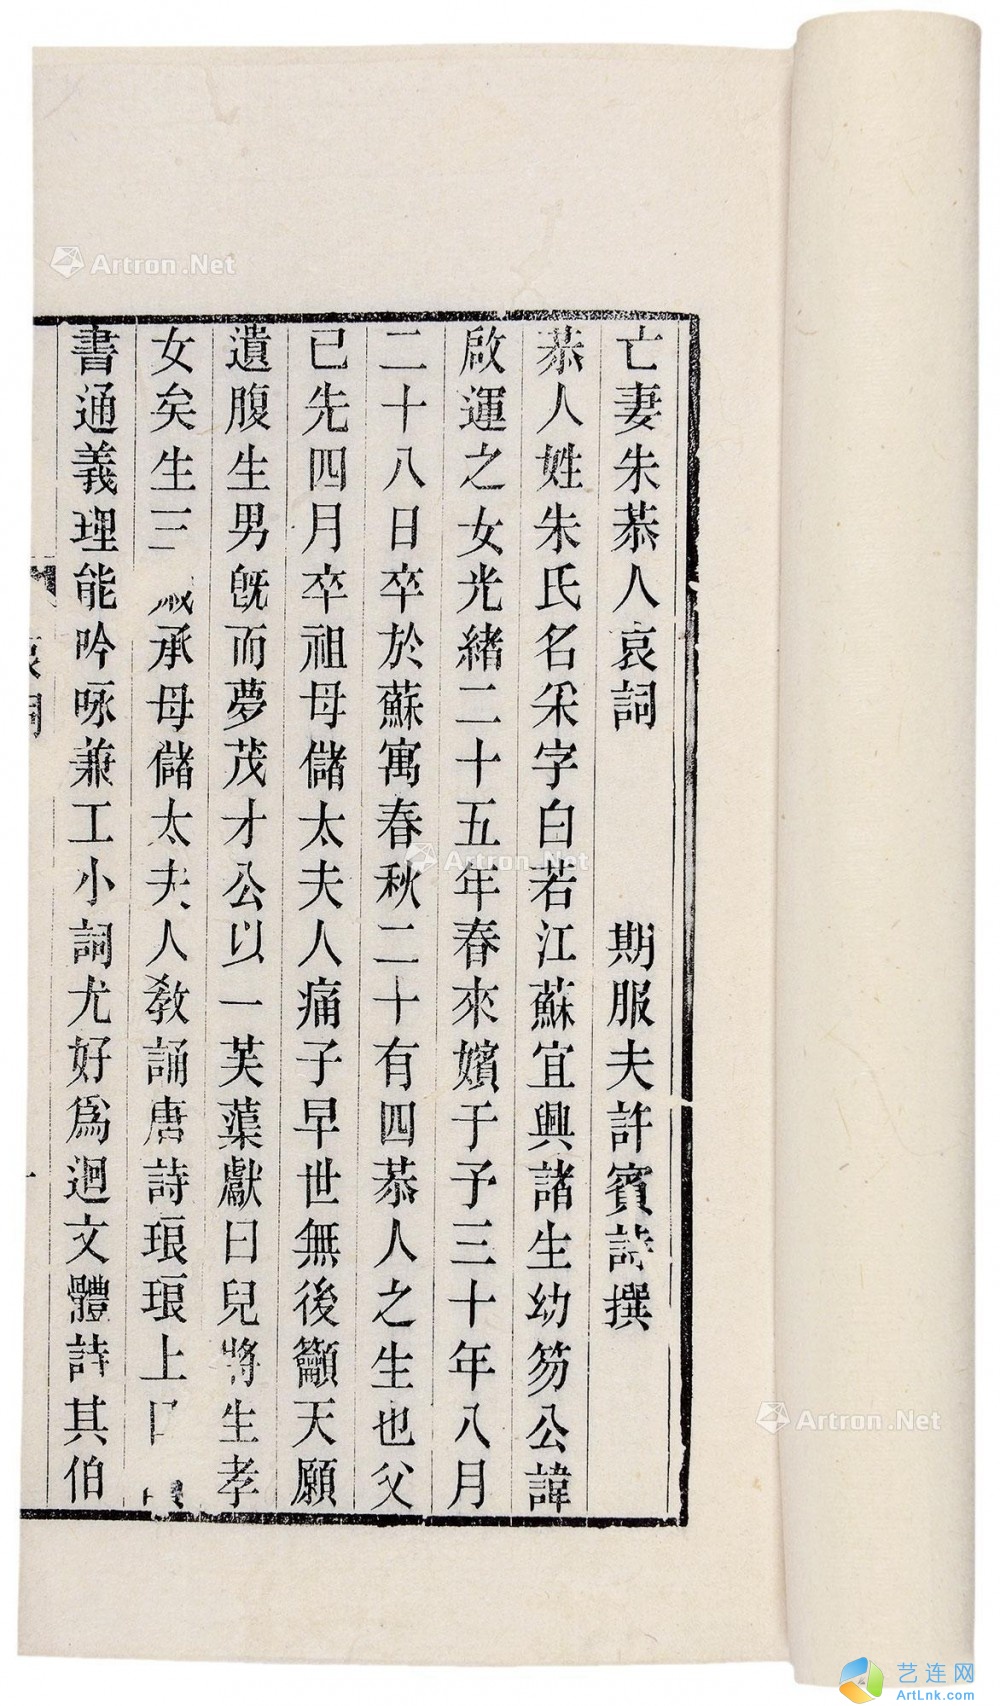 亡妻朱恭人哀詞　期服夫許賓詩撰
恭人姓朱氏名采字白若江蘇宜興諸生幼笏公諱
啟運之女光緒二十五年春來嬪于予三十年八月
二十八日卒於蘇寓春秋二十有四恭人之生也父
已先四月卒祖母儲太夫人痛子早世無後籲天願
遺腹生男旣而夢茂才公以一芙蕖獻曰兒將生孝
女矣生三歲承母儲太夫人敎誦唐詩琅琅上口
書通義理能吟咏兼工小詞尤好爲迴文體詩其伯
哀詞
一
Artron.Net
Artron.Net
Artron.Net
艺连网
ArtLnk.com